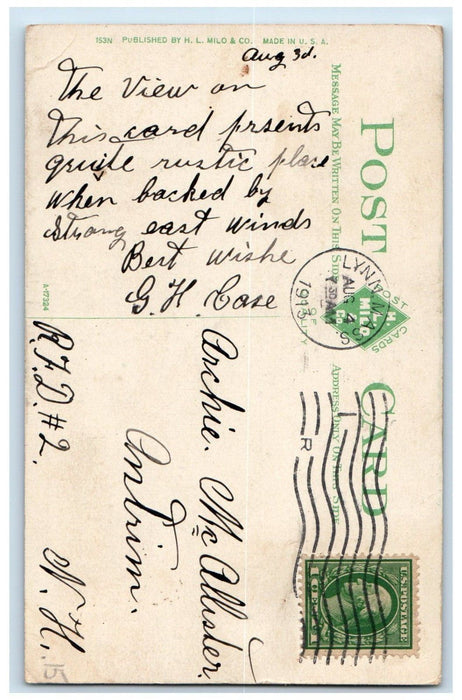 153N PUBLISHED BY H. L. MILO & CO. MADE IN U. S. A.
Aug 3d.
The View on
this card prsents
quite rustic place
when backed by
strong east winds
Best wishe
G. H. Case
POST CARD
MESSAGE MAY BE WRITTEN ON THIS SIDE
ADDRESS ONLY ON THIS SIDE
POST CARDS
OF QUALITY
H. L. MILO & CO.
LYNN, MASS
AUG 4
AM
1913
R
A-17324
Archie. McAllister.
Antrim.
R.F.D. #2. N.H.
15
U.S. POSTAGE
1 CENT 1